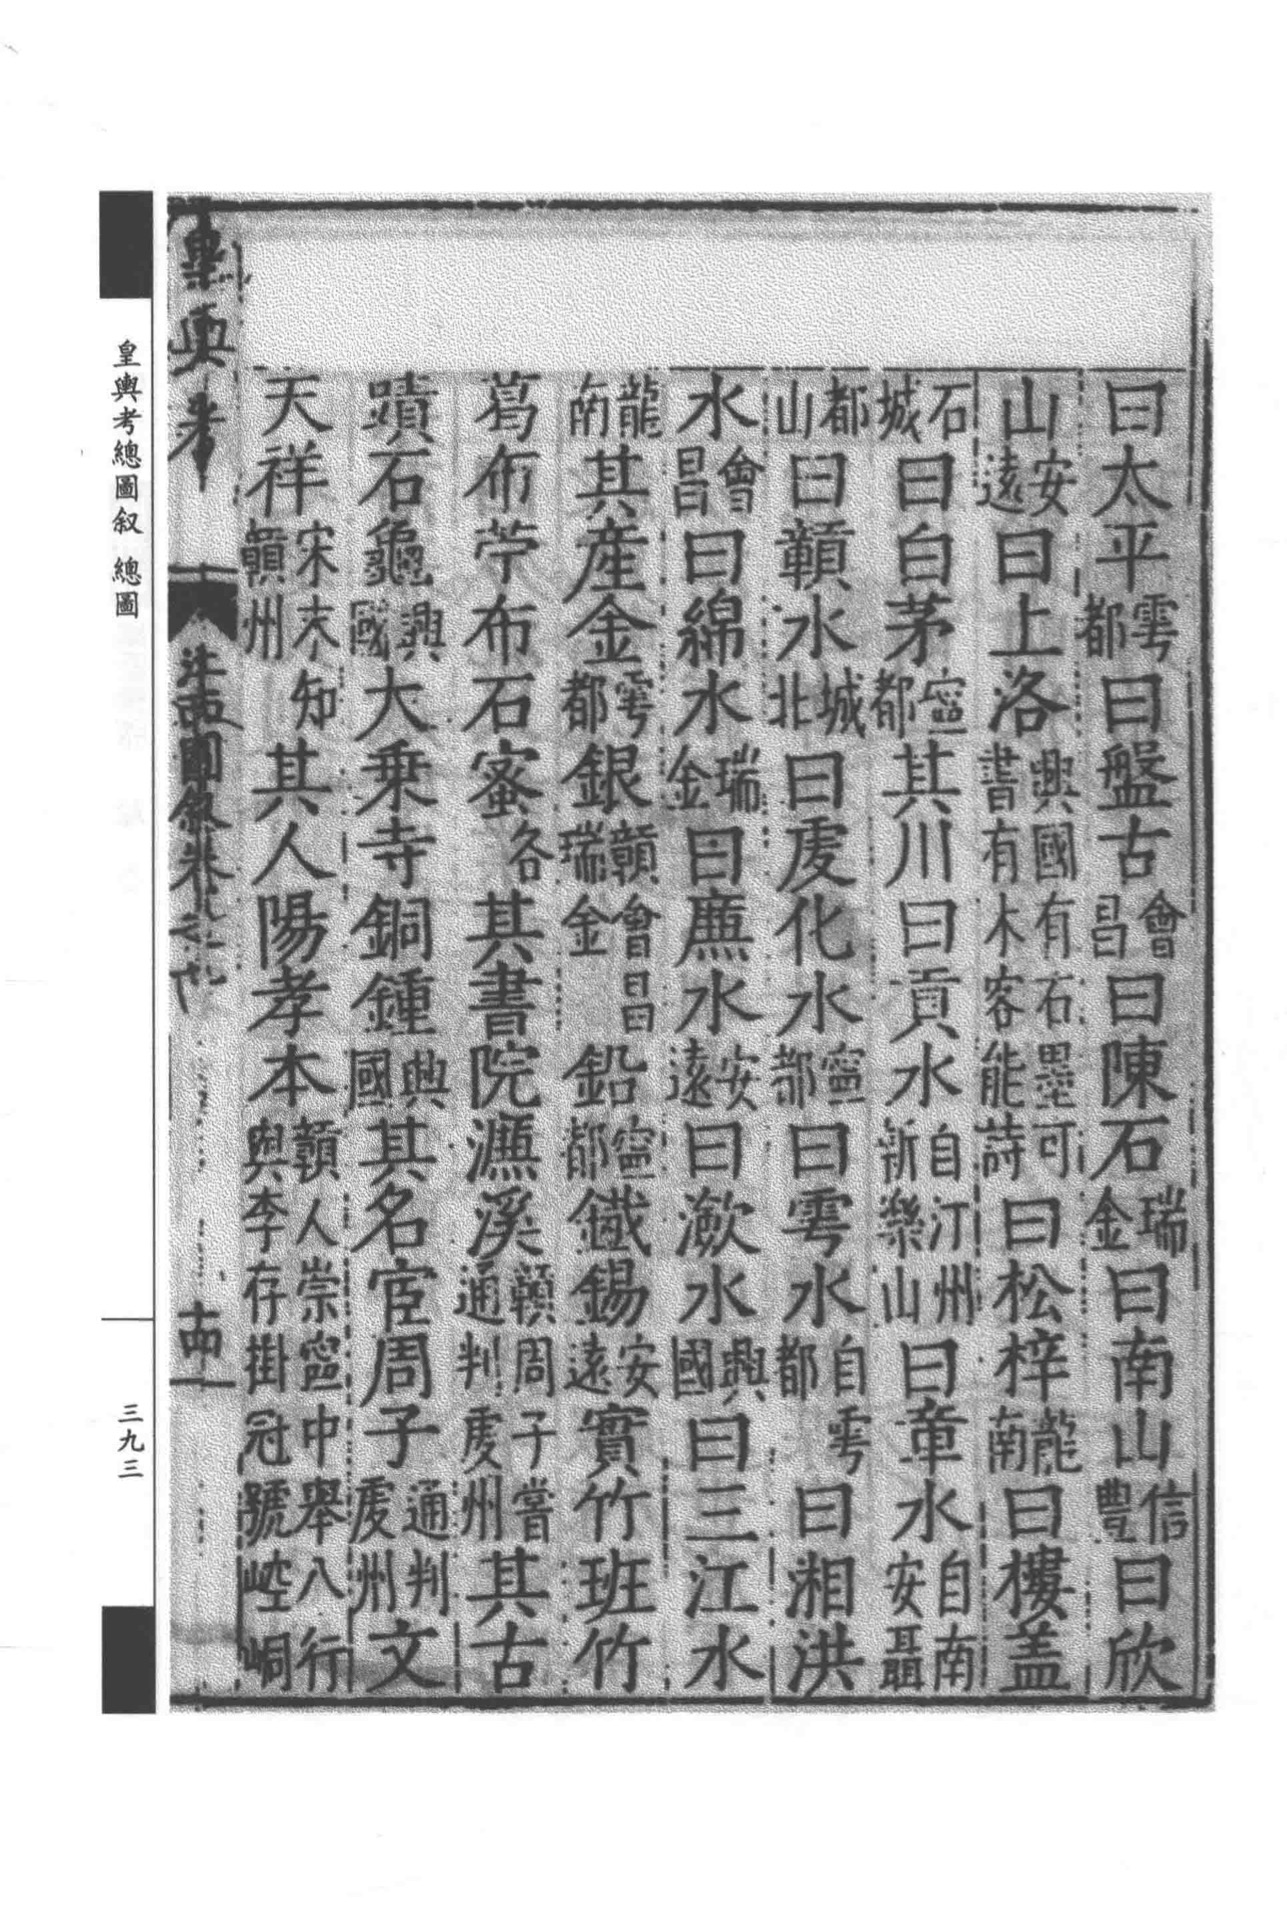 曰太平雩都曰盤古會昌曰陳石瑞金曰南山信豐曰欣
山安遠曰上洛興國有石墨可書有木客能詩曰松梓龍南曰樓盖
石城曰白茅寧都其川曰貢水自汀州新樂山曰章水自南安聶
都山曰贑水城北曰虔化水寧都曰雩水自雩都曰湘洪
水會昌曰綿水瑞金曰廉水安遠曰潋水興國曰三江水
龍南其產金雩都銀贑會昌瑞金鉛寧都鐵錫安遠實竹班竹
葛布苧布石蜜各其書院濂溪贑周子嘗通判虔州其古
蹟石龜興國大乗寺銅鍾興國其名宦周子通判虔州文
天祥宋末知贑州其人陽孝本贑人崇寧中舉八行與李存掛冠號崆峒
皇輿考
江西圖叙卷之九
十四
皇輿考總圖叙 總圖
三九三